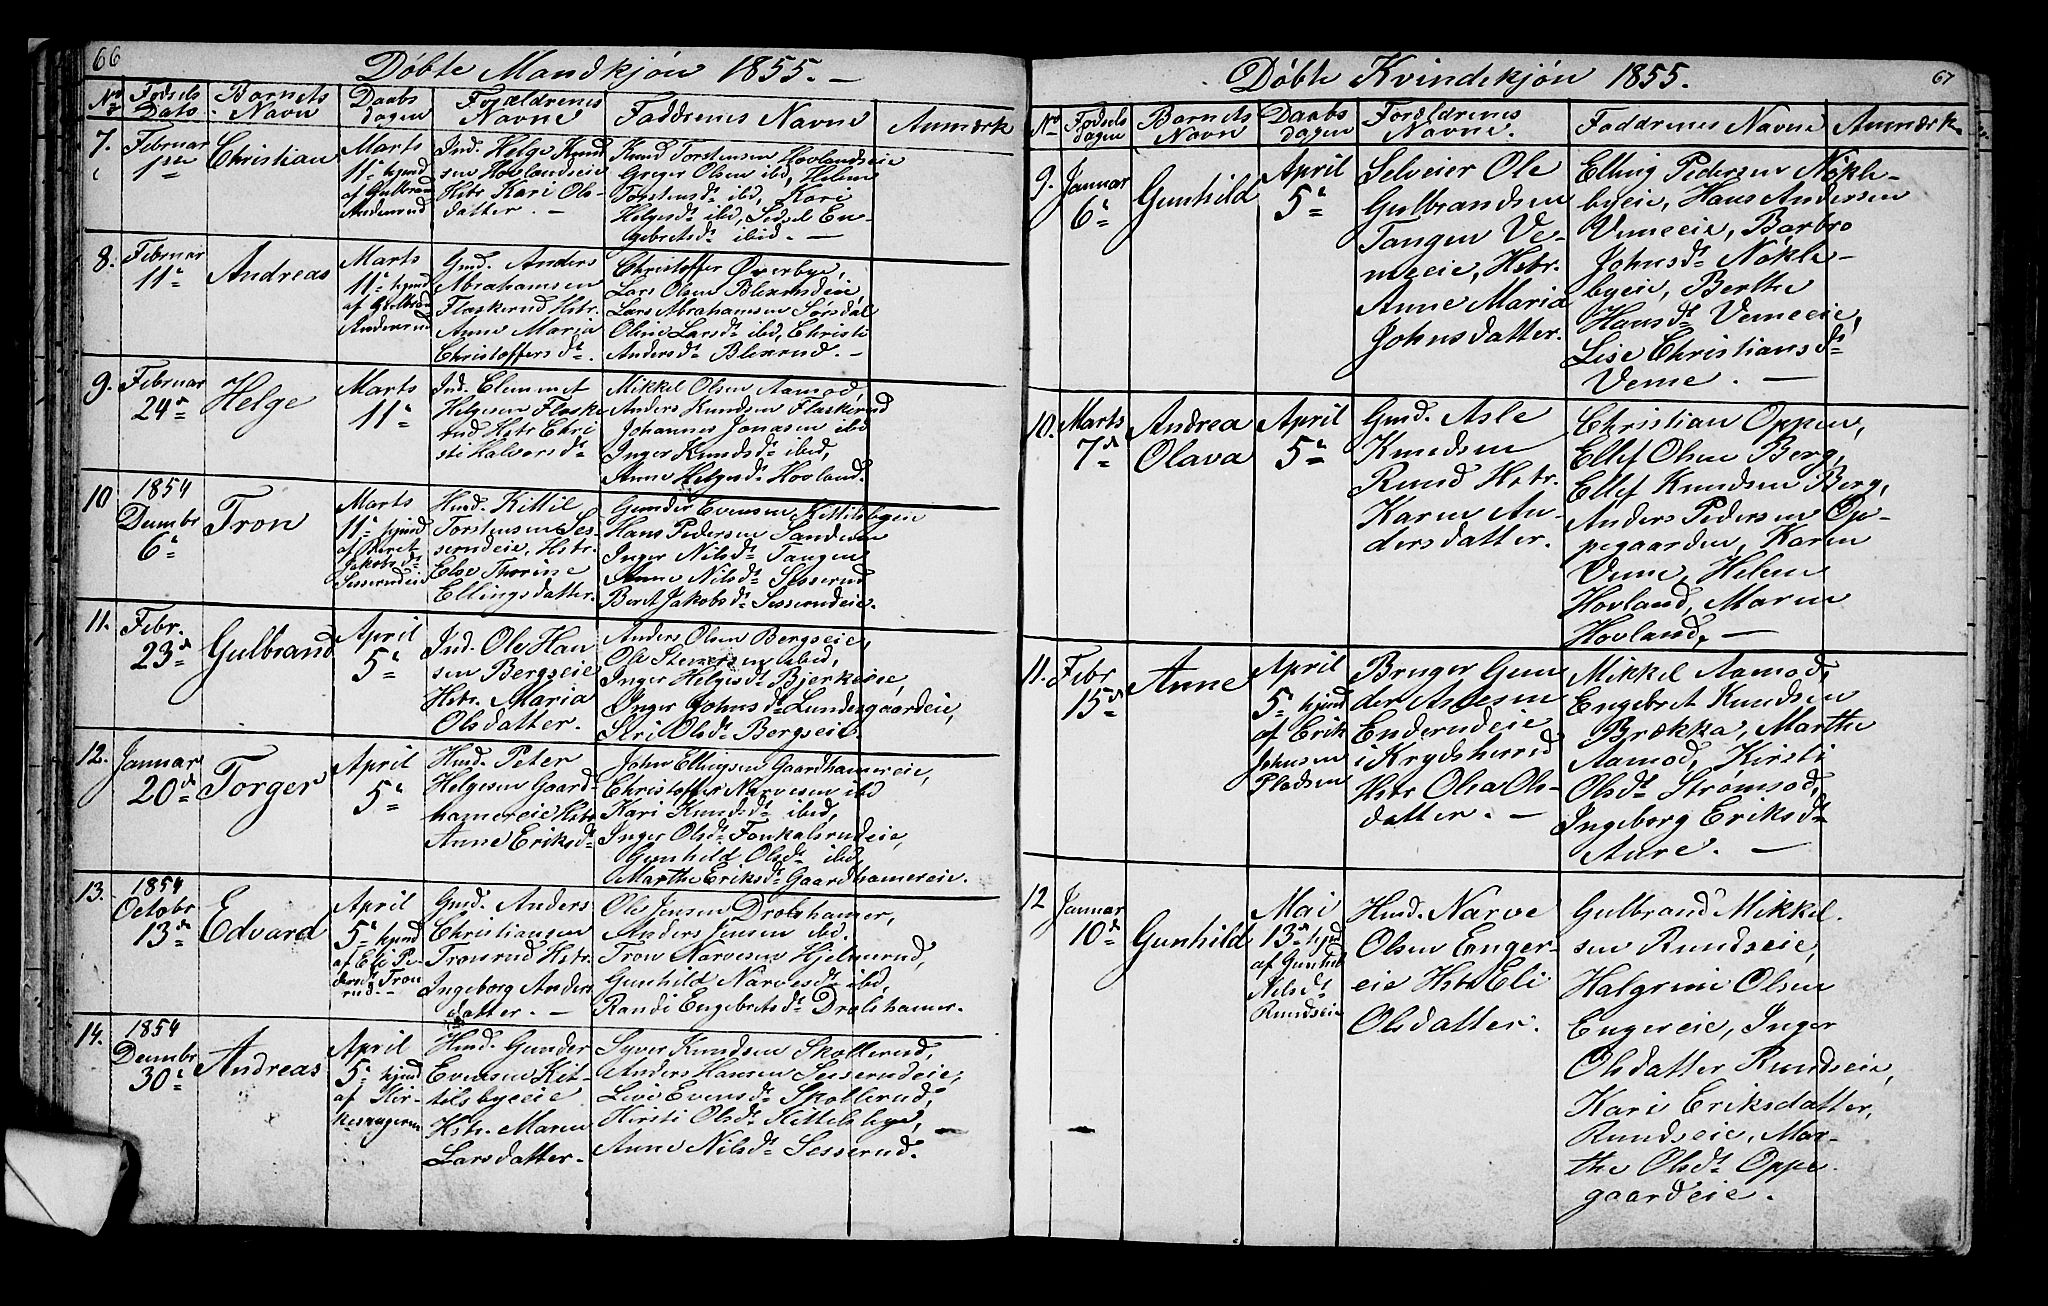 66
Døbte Mandkjøn 1855. —
No
Fødsels Dato
Barnets Navn
Daabs dagen
Forældrenes Navne
Faddrenes Navne
Anmærk
7.
Februar
1ste
Christian
Marts
11te hjmd
af Gulbran
Anderrud
Ind. Helge Knud
sen Hovlandseie
Hstr Kari Ols
datter. —
Knud Torstensen Hovlandseie
Greger Olsen ibd, Helene
Torstensdr ibd, Kari
Helgesdr ibd, Sidsel En-
gebretsdr ibid. —
8.
Februar
11te
Andreas
Marts
11te hjmd
af Gulbran
Anderrud
Gmd. Anders
Abrahamsen
Flaskerud Hstr.
Anne Maria
Christoffersdr.
Christoffer Øverbye,
Lars Olsen Blixrudseie,
Lars Abrahamsen Sørsdal
Oline Larsdr ibd, Christi
Andersdr Blixrud. —
9.
Februar
24de
Helge
Marts
11te
Ind. Clemmet
Helgesen Flaske
rud Hstr Chri
sti Halvorsdr
Mikkel Olsen Aamod,
Anders Knudsen Flaskerud
Johannes Jonasen ibd
Inger Knudsdr ibid,
Anne Helgesdr Hovland.
10
1854
Decmbr
6te
Tron
Marts
11te hjmd
af Beret
Jakobsdr
Sesserudeie
Husd. Kittil
Torstensen Ses-
serudeie, Hstr.
Else Thorine
Ellingsdatter.
Gunder Evensen Kittilsbyeie
Hans Pedersen Sanden
Inger Nilsdr Tangen
Anne Nilsdr Sesserud
Beret Jakobsdr Sesserudeie.
11.
Febr.
23de
Gulbrand
April
5te
Ind. Ole Han
sen Bergseie
Hstr. Maria
Olsdatter.
Anders Olsen Bergseie,
Ole Stenersen ibid,
Inger Helgesdr Bjerkeeie,
Inger Johnsdr Lundesgaardeie,
Siri Olsdr Bergseie
12.
Januar
20de
Torger
April
5te
Husd. Peter
Helgesen Gaard-
hamereie Hstr
Anne Eriksdr
John Ellingsen Gaardhamereie,
Christoffer Narvesen ibd
Kari Knudsdr ibid,
Inger Olsdr Fonkalsrudeie,
Gunhild Olsdr ibd,
Marthe Eriksdr Gaardhamereie.
13.
1854
Octobr
13de
Edvard
April
5te hjmd
af Eli Pe-
dersdr Tron
rud. —
Gmd. Anders
Christiansen
Tronrud Hstr.
Ingeborg Anders
datter. —
Ole Jensen Drolshamer,
Anders Jensen ibd.
Tron Narvesen Hjelmerud,
Gunhild Narvesdr ibd,
Randi Engebretsdr Drolshamer.
14.
1854
Decmbr
30te
Andreas
April
5te hjmd
af Kir-
kesangeren
Husd. Gunder
Evensen Kit-
tilsbyeeie
Hstr. Maren
Larsdatter.
Syver Knudsen Skollerud,
Anders Hansen Sesserudeie,
Live Evensdr Skollerud,
Kirsti Olsdr Kittelsbye,
Anne Nilsdr Sesserud.
Døbte Kvindekjøn 1855.
67
No
Fødsels dagen
Barnets Navn
Daabs dagen
Forældrenes Navne.
Faddrenes Navne
Anmærk.
9.
Januar
6te
Gunhild
April
5te
Selveier Ole
Gulbrandsen
Tangen Ve-
meeie, Hstr.
Anne Maria
Johnsdatter.
Elling Pedersen Nøkle-
byeie, Hans Andersen
Vemeeie, Barbro
Johnsdr Nøkle-
byeie, Berthe
Hansdr Vemeeie,
Lise Christiansdr
Veme. —
10.
Marts
7de
Andrea
Olava
April
5te
Gmd. Asle
Knudsen
Rund Hstr.
Karen An-
dersdatter.
Christian Oppen,
Ellef Olsen Berg,
Ellef Knudsen Berg,
Anders Pedersen Op-
pegaarden, Karen
Veme, Helene
Hovland, Maren
Hovland, —
11.
Febr
15de
Anne
April
5te hjmd
af Erik
Johnsen
Pladsen
Bruger Gun
der Aslesen
Enderudeie
i Krydsherred
Hstr Olea Ols-
datter. —
Mikkel Aamod,
Engebret Knudsen
Brækka, Marthe
Aamod, Kirsti
Olsdr Strømsod,
Ingeborg Eriksdr
Aure. —
12
Januar
10de
Gunhild
Mai
13de hjmd
af Gunhild
Nilsdr
Rundseie
Husd. Narve
Olsen Enger-
eie Hstr Eli
Olsdatter.
Gulbrand Mikkel-
sen Rundseie,
Halgrim Olsen
Engereie, Inger
Olsdatter Rundseie,
Kari Eriksdatter,
Rundseie, Mar-
the Olsdr Oppe-
gaardeie.